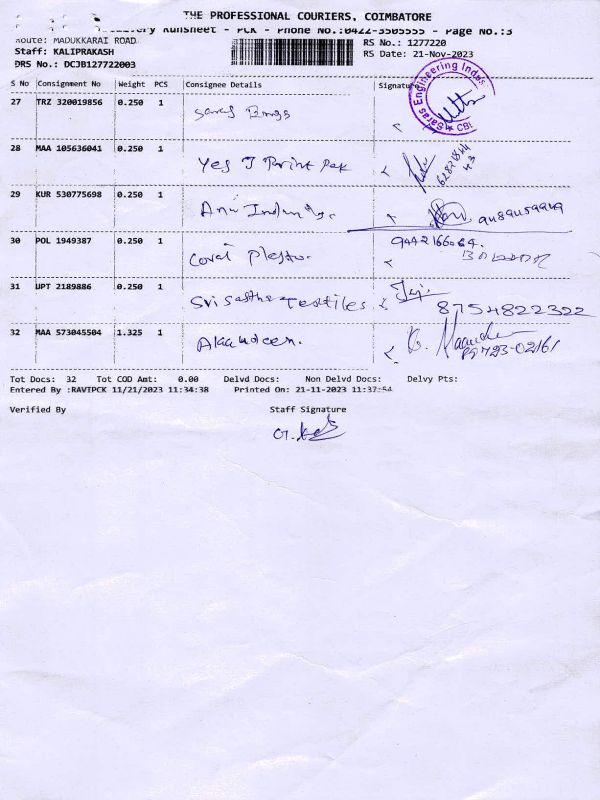 THE PROFESSIONAL COURIERS, COIMBATORE
Delivery Runsheet - PCK - Phone No.:0422-3505555 - Page No.:3
Route: MADUKKARAI ROAD
RS No.: 1277220
Staff: KALIPRAKASH
RS Date: 21-Nov-2023
DRS No.: DCJB127722003
S No Consignment No Weight PCS Consignee Details Signature
Saras Engineering Indus
CBE
27 TRZ 320019856 0.250 1
28 MAA 105636041 0.250 1 Yes J Print Pak
29 KUR 530775698 0.250 1
30 POL 1949387 0.250 1 Coral Plasto. 9442166064.
31 UPT 2189886 0.250 1 Sri Sastha Textiles 8754822322
32 MAA 573045504 1.325 1
Tot Docs: 32 Tot COD Amt: 0.00 Delvd Docs: Non Delvd Docs: Delvy Pts:
Entered By :RAVIPCK 11/21/2023 11:34:38 Printed On: 21-11-2023 11:37:54
Verified By Staff Signature